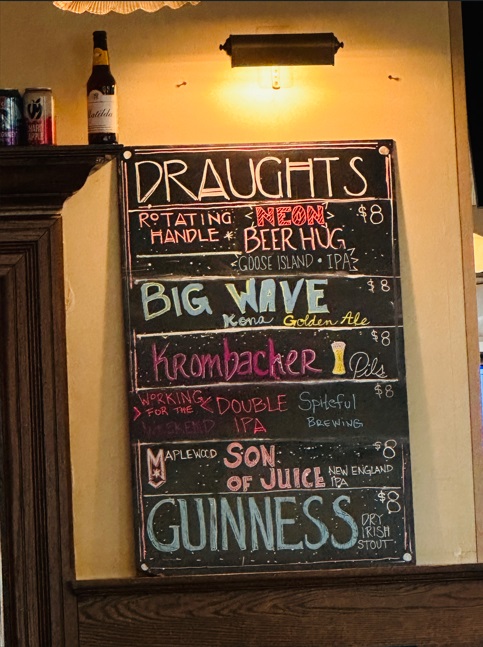 DRAUGHTS
ROTATING HANDLE * <NEON> BEER HUG $8
<GOOSE ISLAND • IPA>
BIG WAVE $8
Kona Golden Ale
Krombacher Pils $8
WORKING FOR THE WEEKEND DOUBLE IPA Spiteful BREWING $8
MAPLEWOOD SON OF JUICE NEW ENGLAND IPA $8
GUINNESS DRY IRISH STOUT $8
Matilda